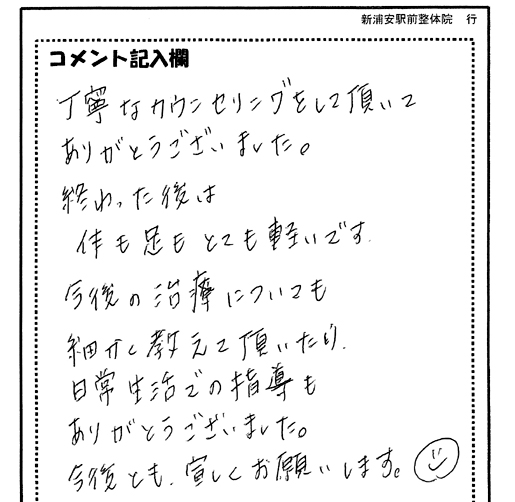 新浦安駅前整体院 行
コメント記入欄
丁寧なカウンセリングをして頂いて
ありがとうございました。
終わった後は
体も足もとても軽いです.
今後の治療についても
細かく教えて頂いたり、
日常生活での指導も
ありがとうございました。
今後とも、宜しくお願いします。